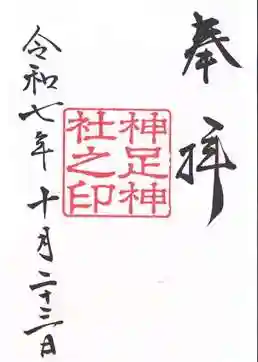 奉拝
神足神
社之印
令和七年十月二十三日